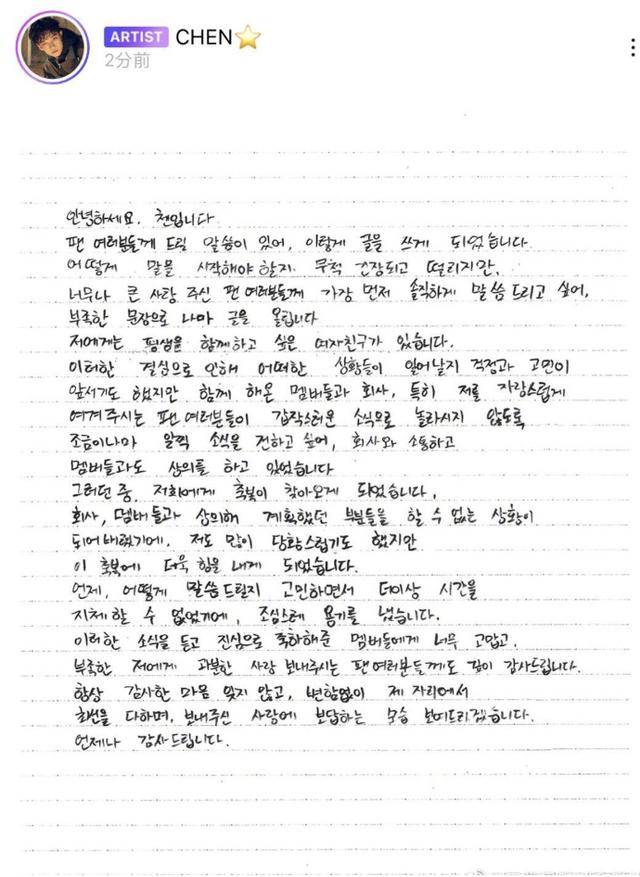 ARTIST CHEN⭐
2分前
안녕하세요. 첸입니다
팬 여러분들께 드릴 말씀이 있어, 이렇게 글을 쓰게 되었습니다
어떻게 말을 시작해야 할지 무척 긴장되고 떨리지만,
너무나 큰 사랑 주신 팬 여러분들께 가장 먼저 솔직하게 말씀드리고 싶어,
부족한 문장으로 나마 글을 올립니다
저에게는 평생을 함께하고 싶은 여자친구가 있습니다.
이러한 결심으로 인해 어떠한 상황들이 일어날지 걱정과 고민이
앞서기도 했지만 함께 해온 멤버들과 회사, 특히 저를 자랑스럽게
여겨주시는 팬 여러분들이 갑작스러운 소식으로 놀라시지 않도록
조금이나마 일찍 소식을 전하고 싶어, 회사와 소통하고
멤버들과도 상의를 하고 있었습니다
그러던 중, 저희에게 축복이 찾아오게 되었습니다.
회사, 멤버들과 상의해 계획했던 부분들을 할 수 없는 상황이
되어버렸기에, 저도 많이 당황스럽기도 했지만
이 축복에 더욱 힘을 내게 되었습니다.
언제, 어떻게 말씀드릴지 고민하면서 더이상 시간을
지체할 수 없었기에, 조심스레 용기를 냈습니다.
이러한 소식을 듣고 진심으로 축하해준 멤버들에게 너무 고맙고,
부족한 저에게 과분한 사랑 보내주시는 팬 여러분들께도 깊이 감사드립니다.
항상 감사한 마음 잊지 않고, 변함없이 제 자리에서
최선을 다하며, 보내주신 사랑에 보답하는 모습 보여드리겠습니다.
언제나 감사드립니다.